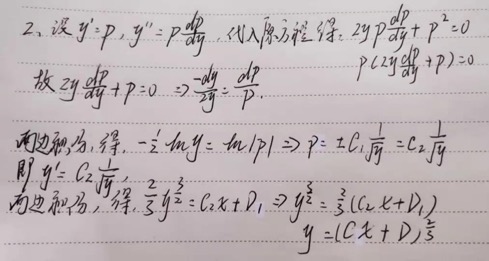 2、设 y'=p, y''=p dp/dy, 代入原方程得: 2yp dp/dy + p²=0
p(2y dp/dy + p)=0
故 2y dp/dy + p=0 ⇒ -dy/2y = dp/p.
两边积分, 得, -1/2 ln y = ln|p| ⇒ p= ±C₁ 1/√y = C₂ 1/√y
即 y' = C₂ 1/√y,
两边积分, 得, 2/3 y^(3/2) = C₂x+D₁ ⇒ y^(3/2) = 3/2 (C₂x+D₁)
y=(Cx+D)^(2/3)